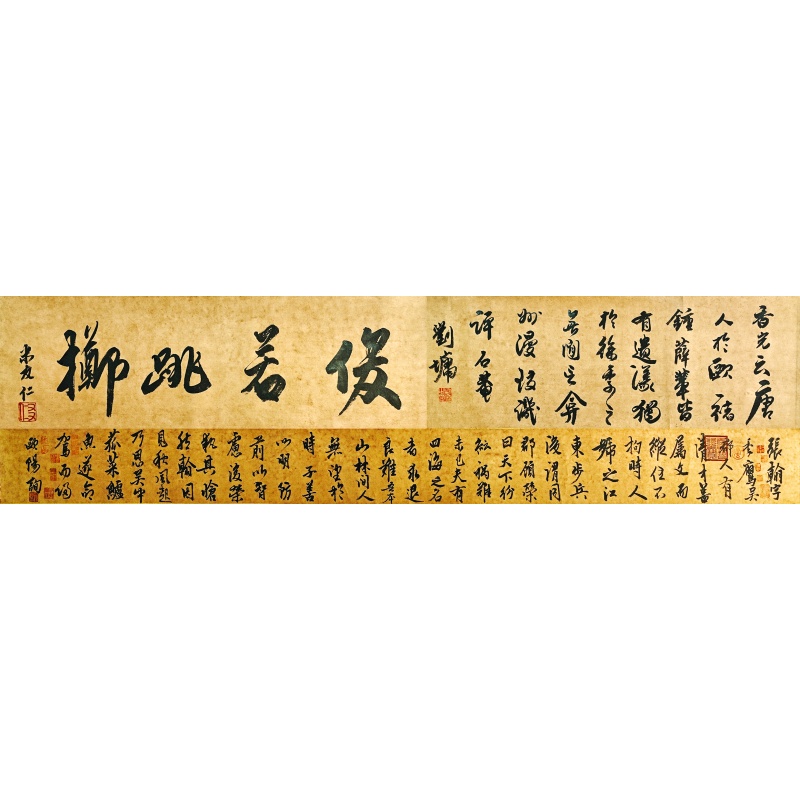 香光云唐
人於歐褚
鍾薛輩皆
有遺議獨
於徐季之
無間言弇
州漫後
評石菴
劉墉
俊若跳擲
米友仁
張翰字
季鷹吳
郡人有
清才善
屬文而
縱任不
拘時人
號之江
東步兵
後謂同
郡顧榮
曰天下紛
紜禍難
未已夫有
四海之名
者求退
良難吾本
山林間人
無望於
時子善
以明防
前以智
慮後榮
執其愴
然翰因
見秋風起
乃思吳中
菰菜鱸
魚遂命
駕而歸
歐陽詢